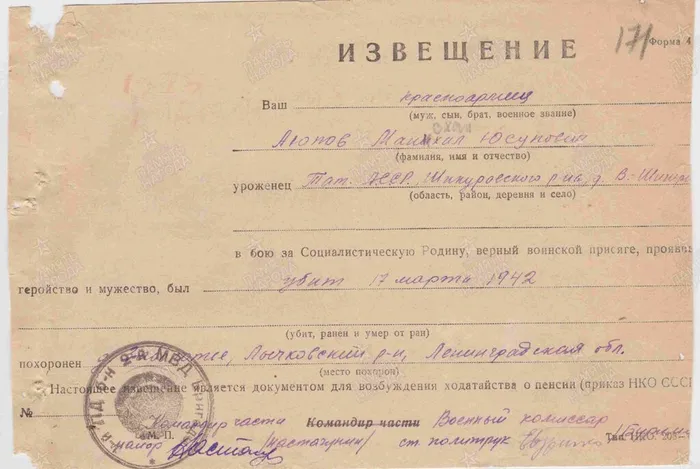 171
Форма 4
ИЗВЕЩЕНИЕ
Ваш красноармеец
(муж, сын, брат, военное звание)
Юсупович
(фамилия, имя и отчество)
уроженец Тат. АССР, р-на, д.
(область, район, деревня и село)
в бою за Социалистическую Родину, верный воинской присяге, проявив
геройство и мужество, был убит 17 марта 1942
(убит, ранен и умер от ран)
похоронен Лычковский р-н, Ленинградская обл.
(место похорон)
Настоящее извещение является документом для возбуждения ходатайства о пенсии (приказ НКО СССР
№
Командир части Командир части Военный комиссар
М. П.
майор ст. политрук
Тип. НКО.